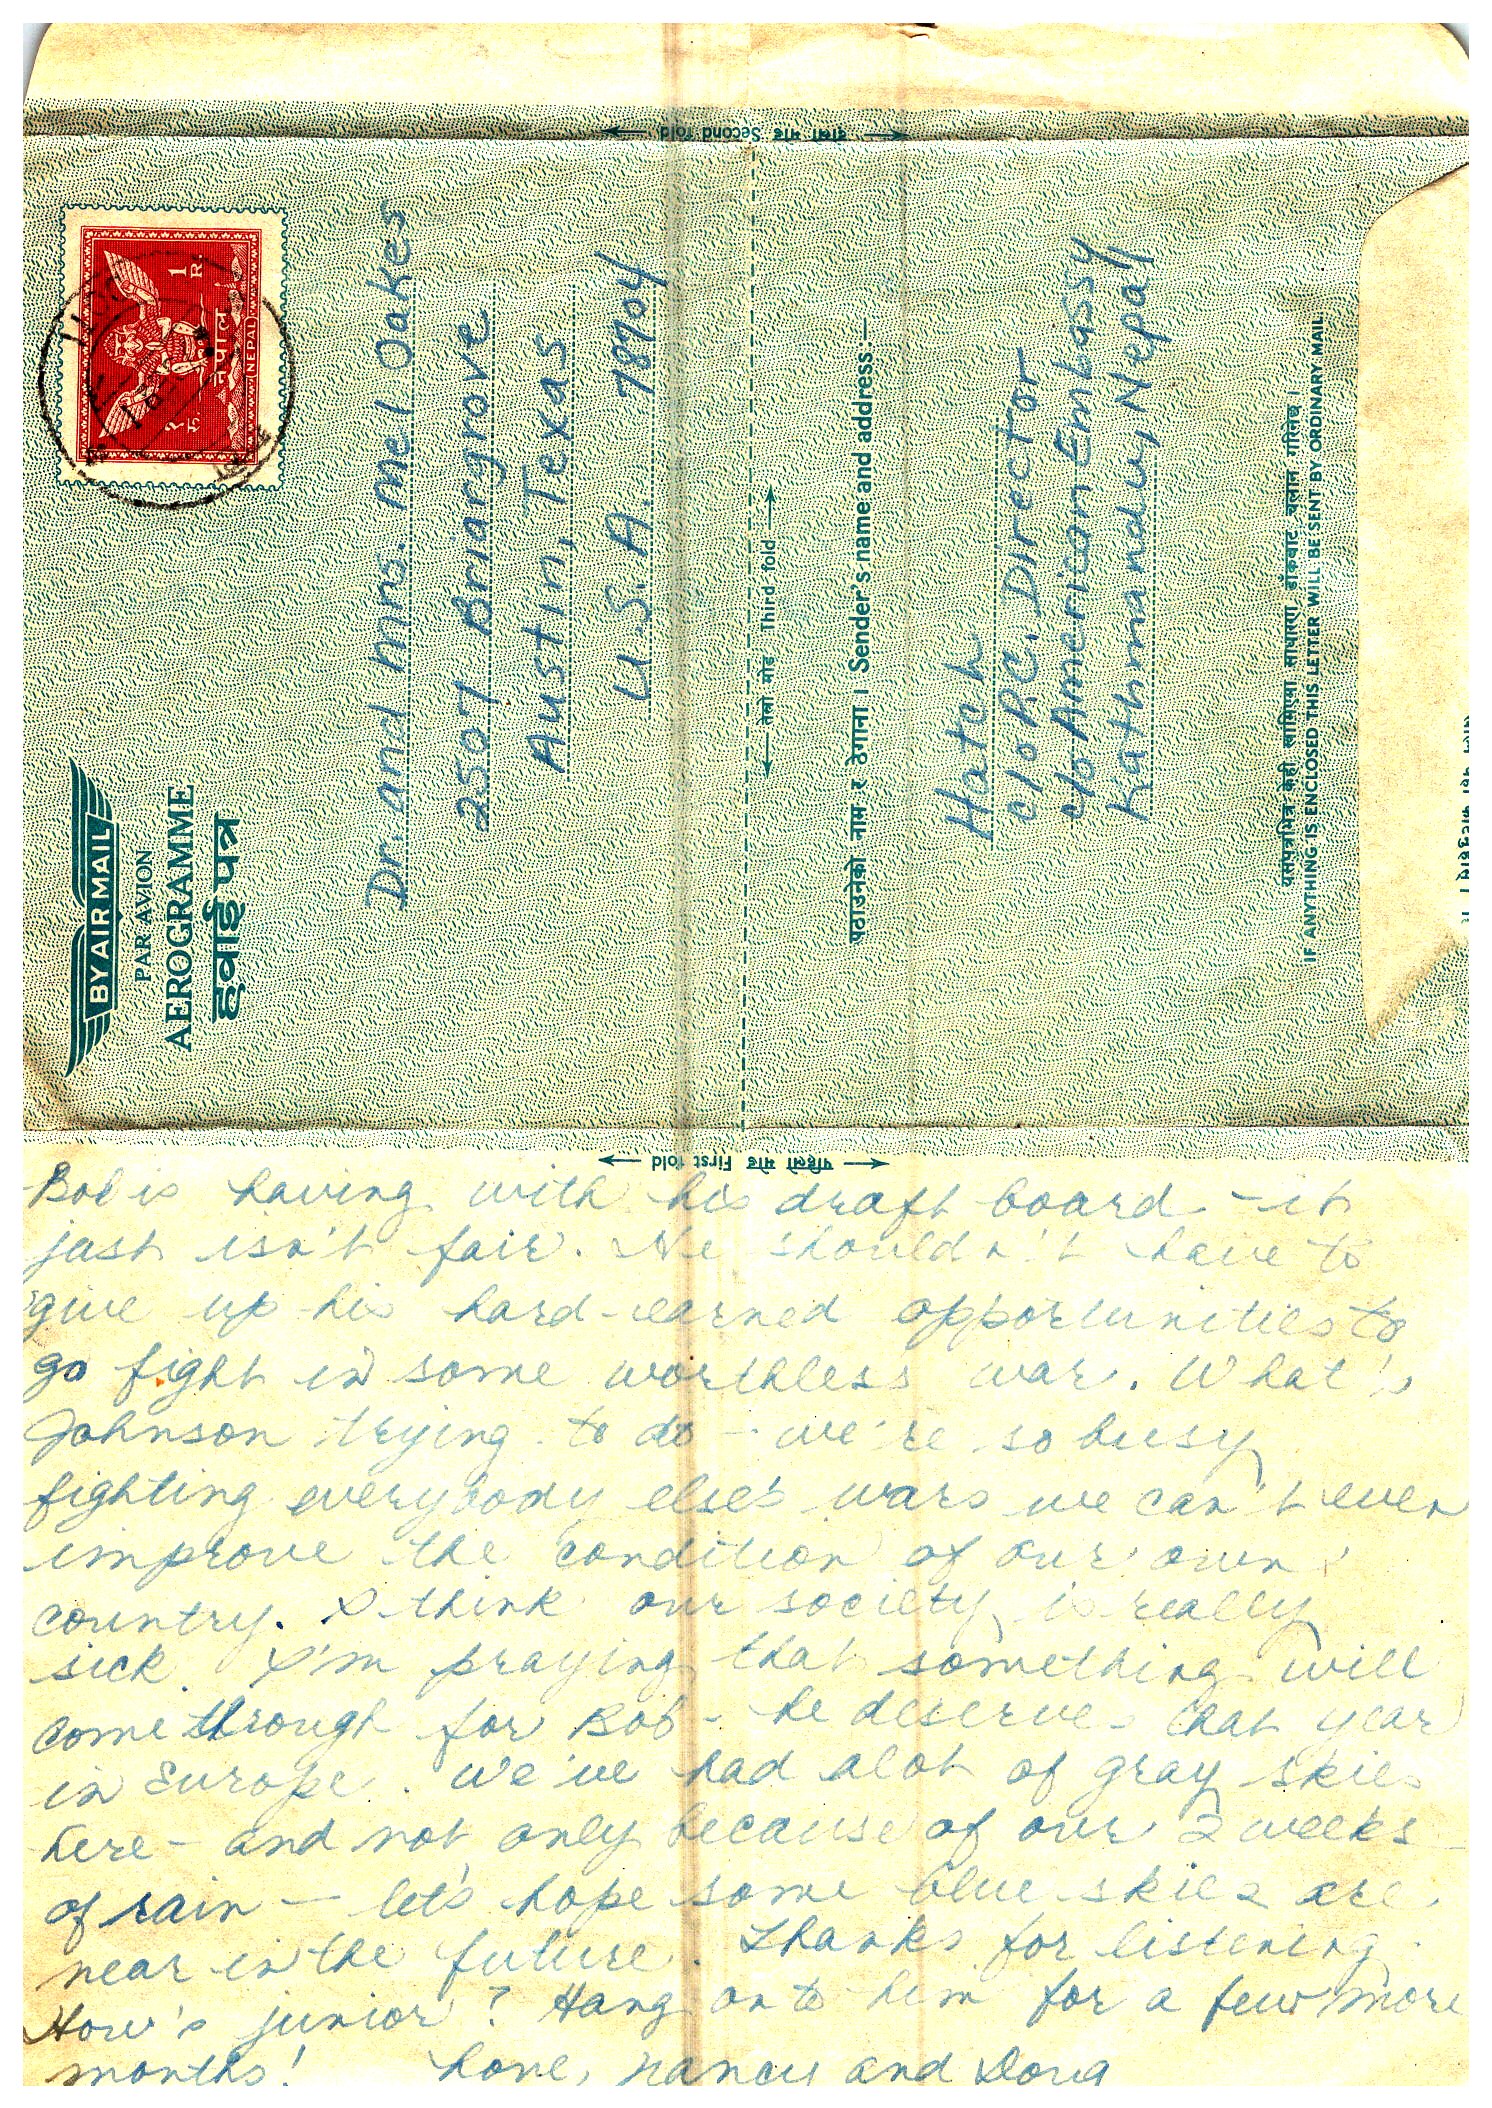 Second fold दोस्रो मोड
१ रु. नेपाल 1 R.
(NEPAL)
BY AIR MAIL
PAR AVION
AEROGRAMME
हवाई पत्र
Dr. and Mrs. Mel Oakes
2507 Briargrove
Austin, Texas
U.S.A. 78704
तेस्रो मोड Third fold
पठाउनेको नाम र ठेगाना । Sender's name and address:—
Hatch
c/o P.C. Director
c/o American Embassy
Kathmandu, Nepal
यसपत्रभित्र केही खामिएमा साधारण डाँकबाट चलान गरिनेछ ।
IF ANYTHING IS ENCLOSED THIS LETTER WILL BE SENT BY ORDINARY MAIL.
पहिलो मोड First fold
Bob is having with his draft board - it
just isn't fair. He shouldn't have to
give up his hard-earned opportunities to
go fight in some worthless war. What's
Johnson trying to do - we're so busy
fighting everybody else's wars we can't even
improve the condition of our own
country. I think our society is really
sick. I'm praying that something will
come through for Bob - he deserves that year
in Europe. We've had alot of gray skies
here - and not only because of our 2 weeks
of rain — let's hope some blue skies are
near in the future. Thanks for listening.
How's junior? Hang on to him for a few more
months! Love, Nancy and Doug